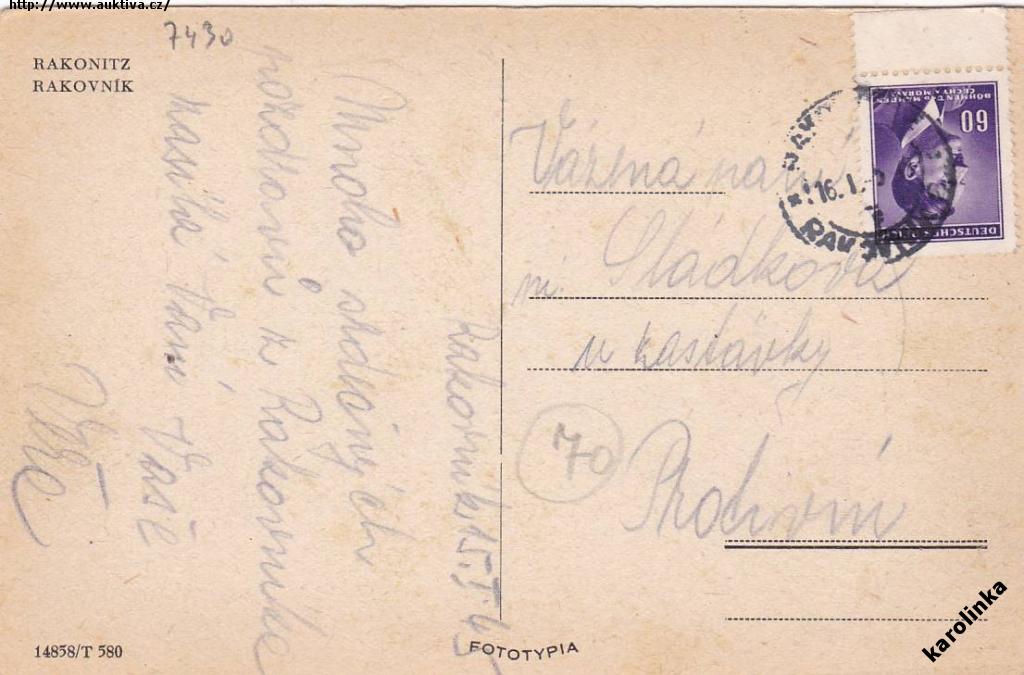 http://www.auktiva.cz/
7430
RAKONITZ
RAKOVNÍK
Rakovník 15.I.43
Mnoho srdečných
pozdravů z Rakovníka
zasílá Vám Vaše
Věra
Vážená paní
Sládková
u zastávky
70
Protivín
60
BÖHMEN U. MÄHREN
ČECHY A MORAVA
DEUTSCHES REICH
16.I.
14858/T 580
FOTOTYPIA
karolinka